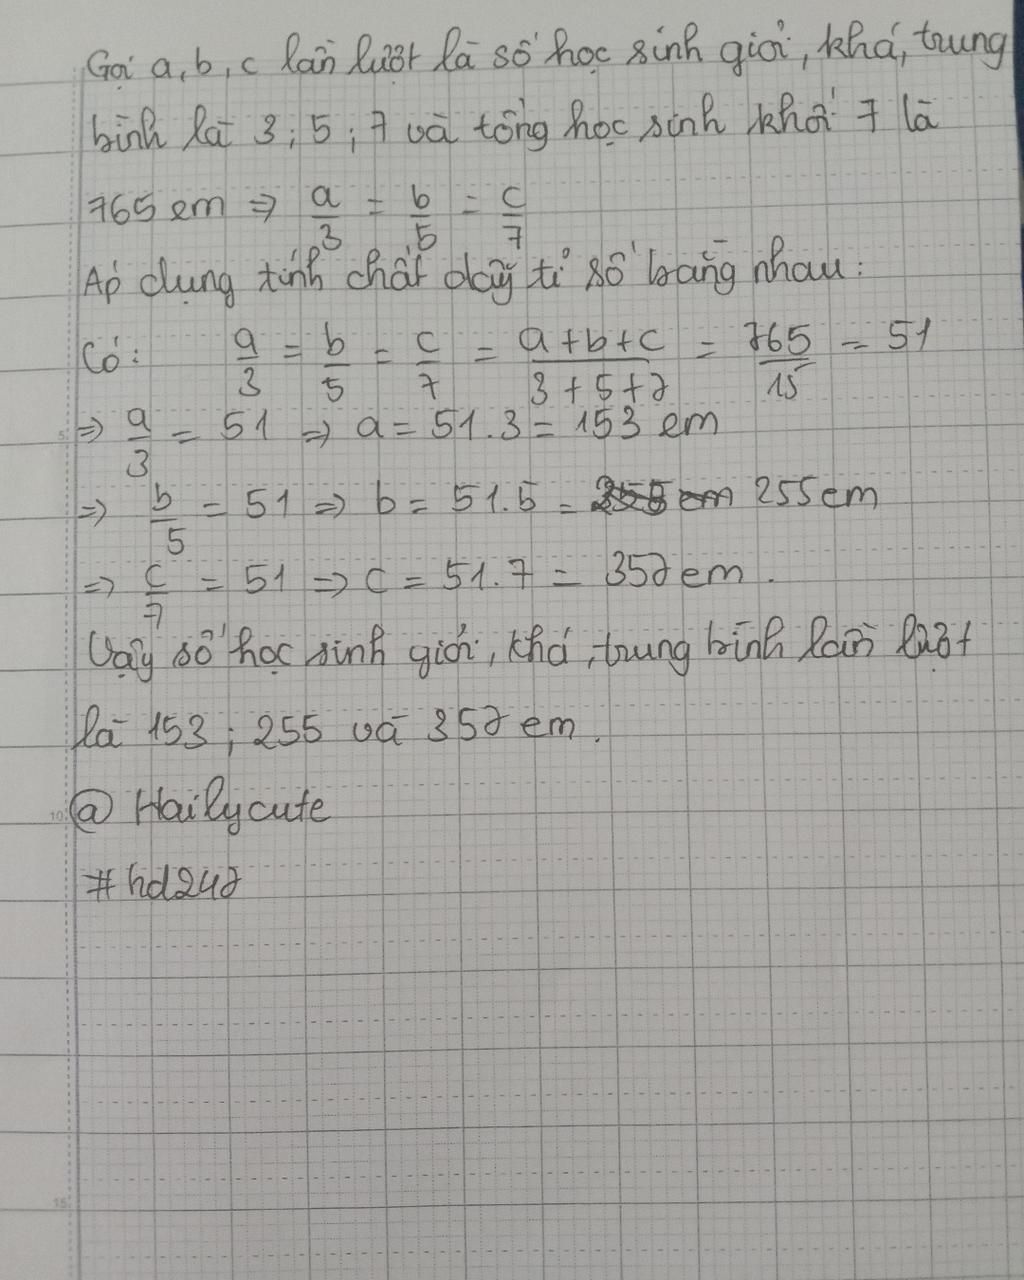 Gọi a, b, c lần lượt là số học sinh giỏi, khá, trung
bình là 3; 5; 7 và tổng học sinh khối 7 là
765 em ⇒ a/3 = b/5 = c/7
Áp dụng tính chất dãy tỉ số bằng nhau:
Có: a/3 = b/5 = c/7 = (a+b+c)/(3+5+7) = 765/15 = 51
⇒ a/3 = 51 ⇒ a = 51.3 = 153 em
⇒ b/5 = 51 ⇒ b = 51.5 = 255 em
⇒ c/7 = 51 ⇒ c = 51.7 = 357 em.
Vậy số học sinh giỏi, khá, trung bình lần lượt
là 153; 255 và 357 em.
@ Hailycute
# hd247